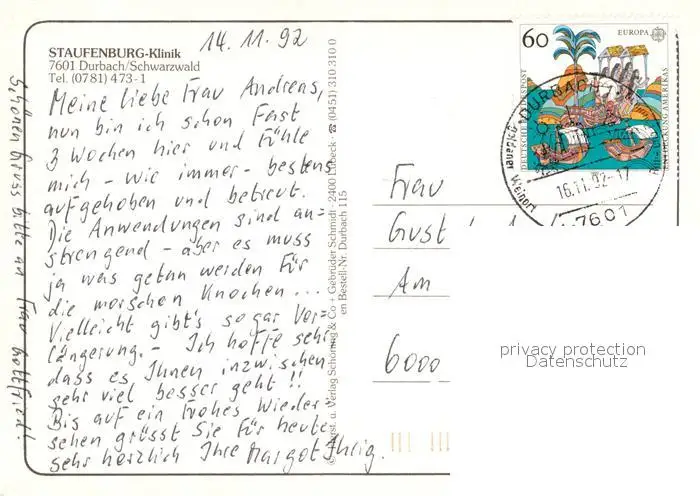 14.11.92
STAUFENBURG-Klinik
7601 Durbach/Schwarzwald
Tel. (0781) 473-1
Meine liebe Frau Andreas,
nun bin ich schon fast
3 Wochen hier und fühle
mich - wie immer - bestens
aufgehoben und betreut.
Die Anwendungen sind an-
strengend - aber es muss
ja was getan werden für
die morschen Knochen...
Vielleicht gibt's sogar Ver-
längerung. - Ich hoffe sehr
dass es Ihnen inzwischen
sehr viel besser geht!!
Bis auf ein frohes Wieder-
sehen grüsst Sie für heute
sehr herzlich Ihre Margot Ihlig.
Schönen Gruss bitte an Frau Gottfried!
Verlag Schöning & Co + Gebrüder Schmidt · 2400 Lübeck · ☎ (0451) 310 310 0
en Bestell-Nr. Durbach 115
60
EUROPA
DEUTSCHE BUNDESPOST
ENTDECKUNG AMERIKAS
DURBACH
Weinort
16.11.92-17
7601
Frau
Gust
Am
6000
privacy protection
Datenschutz